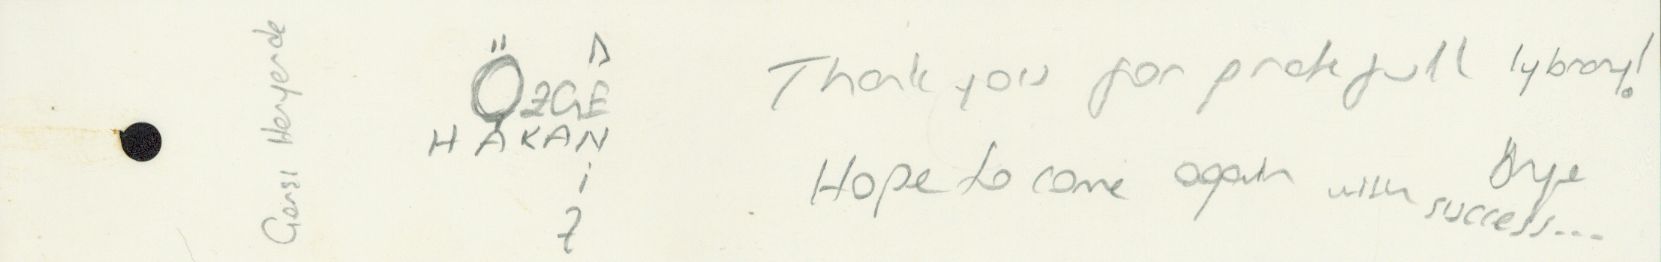 Gensi Heryerde
ÖZGE
HAKAN
Thank you for pratefull lybrary!
Hope to come again with success....
Bye